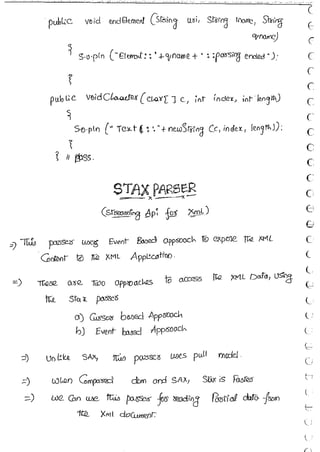 public void endElement (String uri, String lname, String
qname)
{
S.o.pln ("Element::"+qname+"::parsing ended");
}
public void Character (char[] c, int index, int length)
{
S.o.pln ("Text::"+newString (c, index, length));
}
} // pass.
STAX PARSER
(Streaming Api for Xml)
=) This parser uses Event Based approach to expose the XML
Content to the XML Application.
=) These are two approaches to access the XML Data, using
the Stax parser
a) Cursor based Approach
b) Event based Approach
=) Unlike SAX, this parser uses pull model.
=) When Compared dom and SAX, Stax is Faster
=) we Can use this parser for reading Partial data from
the Xml document.